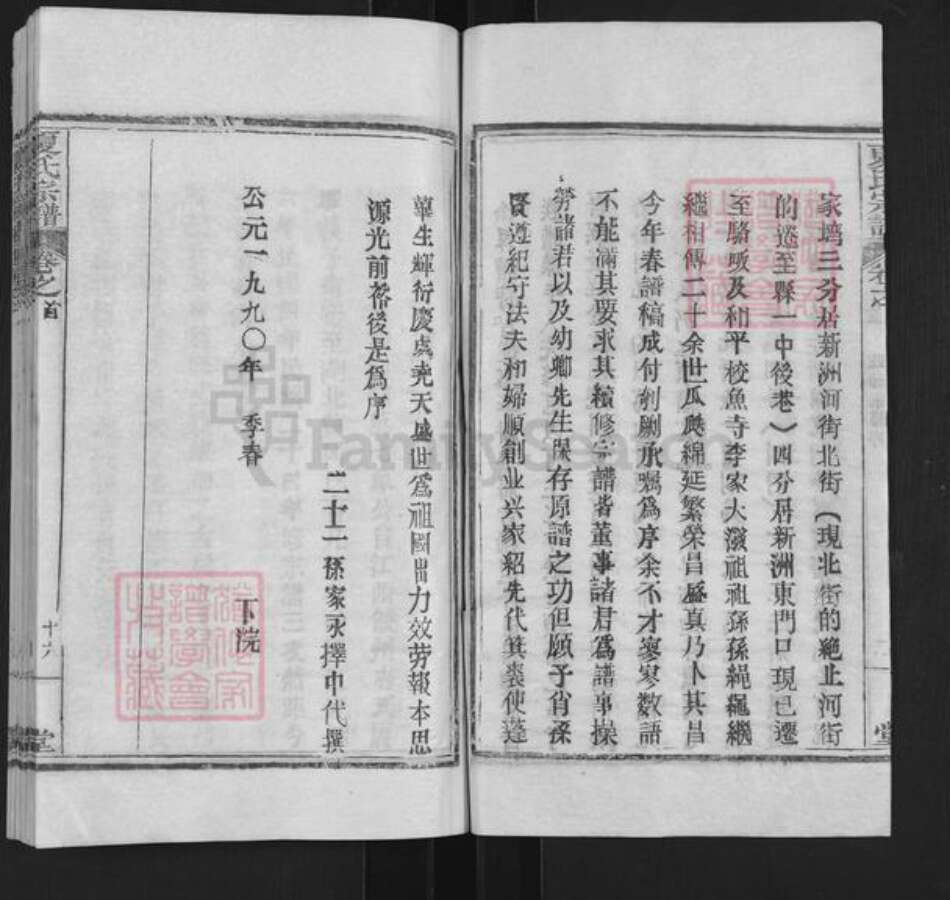 家塆三分居新洲河街北街(現北街的絶止河街
的遷至縣一中後巷)四分居新洲東門口現已遷
至駱畈及和平校魚寺李家大灣祖祖孫孫繩繩繼
繼相傳二十余世瓜瓞綿延繁榮昌盛真乃卜其昌
今年春譜稿成付剞劂承囑爲序余不才寥寥数語
不能滿其要求其續修宗譜皆董事諸君爲譜事操
勞諸君以及幼卿先生保存原譜之功但願予肖孫
賢遵紀守法夫和婦順創业兴家紹先代箕裘使蓬
蓽生輝衍慶虞堯天盛世爲祖國出力效劳報本思
源光前裕後是爲序
二十二孫家永擇中代撰
公元一九九〇年 季春 下浣
夏氏宗譜 卷之首 十六 堂
夏氏宗譜 卷之 堂
FamilySearch